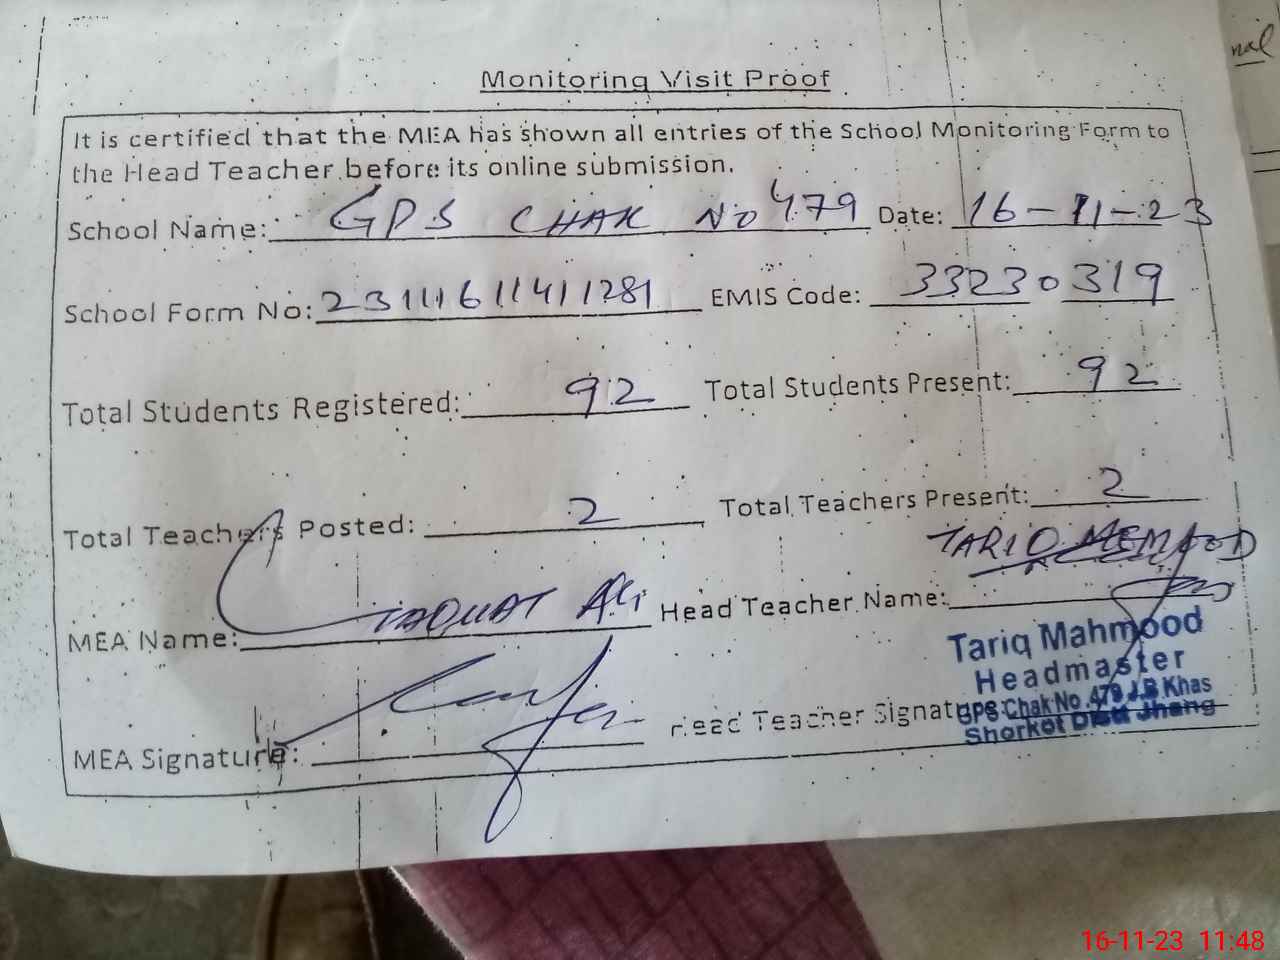 nal
Monitoring Visit Proof
It is certified that the MEA has shown all entries of the School Monitoring Form to
the Head Teacher before its online submission.
School Name: GPS CHAK NO 479 Date: 16-11-23
School Form No: 23111611411281 EMIS Code: 33230319
Total Students Registered: 92 Total Students Present: 92
Total Teachers Posted: 2 Total Teachers Present: 2
TARIQ MEMAOOD
MEA Name: LAQUAT Ali Head Teacher Name:
Tariq Mahmood
Headmaster
MEA Signature: Head Teacher Signature:
GPS Chak No. 479 J.B Khas
Shorkot Distt Jhang
16-11-23 11:48